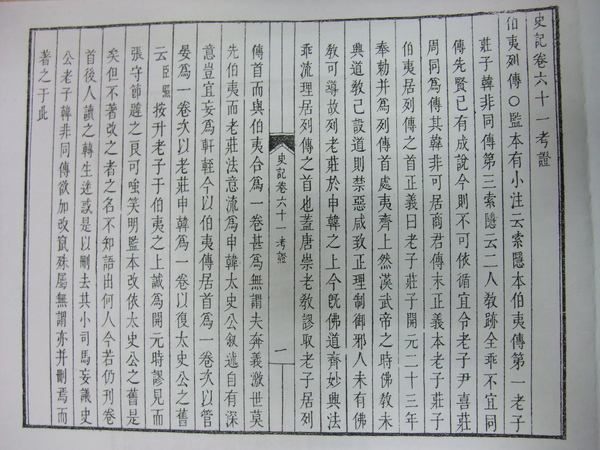 史記卷六十一考證
伯夷列傳○監本有小注云索隱本伯夷傳第一老子
莊子韓非同傳第三索隱云二人教跡全乖不宜同
傳先賢已有成說今則不可依循宜令老子尹喜莊
周同爲傳其韓非可居商君傳末正義本老子莊子
伯夷居列傳之首正義曰老子莊子開元二十三年
奉勅并爲列傳首處夷齊上然漢武帝之時佛教未
興道教已設道則禁惡咸致正理制御邪人未有佛
教可導故列老莊於申韓之上今旣佛道齊妙興法
乖流理居列傳之首也蓋唐崇老教謬取老子居列
史記卷六十一考證 一
傳首而與伯夷合爲一卷甚爲無謂夫奔義激世莫
先伯夷而老莊法意流爲申韓太史公叙述自有深
意豈宜妄爲軒輊今以伯夷傳居首爲一卷次以管
晏爲一卷次以老莊申韓爲一卷以復太史公之舊
云臣照按升老子于伯夷之上誠爲開元時謬見而
張守節之良可嗤笑明監本改依太史公之舊是
矣但不著改之者之名不知語出何人今若仍刊卷
首後人讀之轉生迷惑是以刪去其小司馬妄議史
公老子韓非同傳欲加改竄殊屬無謂亦并刪焉而
著之于此